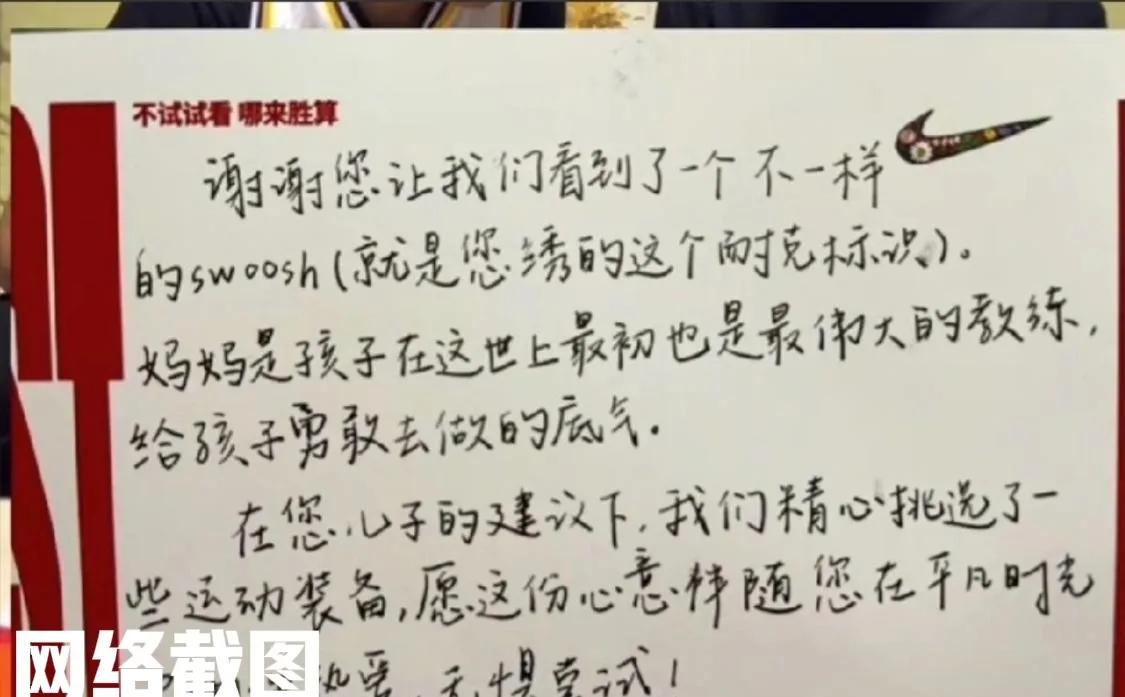 不试试看 哪来胜算
谢谢您让我们看到了一个不一样
的swoosh(就是您绣的这个耐克标识)。
妈妈是孩子在这世上最初也是最伟大的教练，
给孩子勇敢去做的底气。
在您儿子的建议下，我们精心挑选了一
些运动装备，愿这份心意伴随您在平凡时光
热爱，无惧尝试！
网络截图